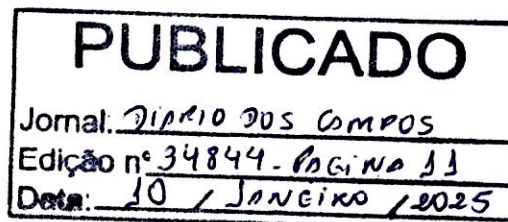 PUBLICADO
Jornal: DIÁRIO DOS CAMPOS
Edição nº 34844 - PAGINA 11
Data: 10 / JANEIRO / 2025